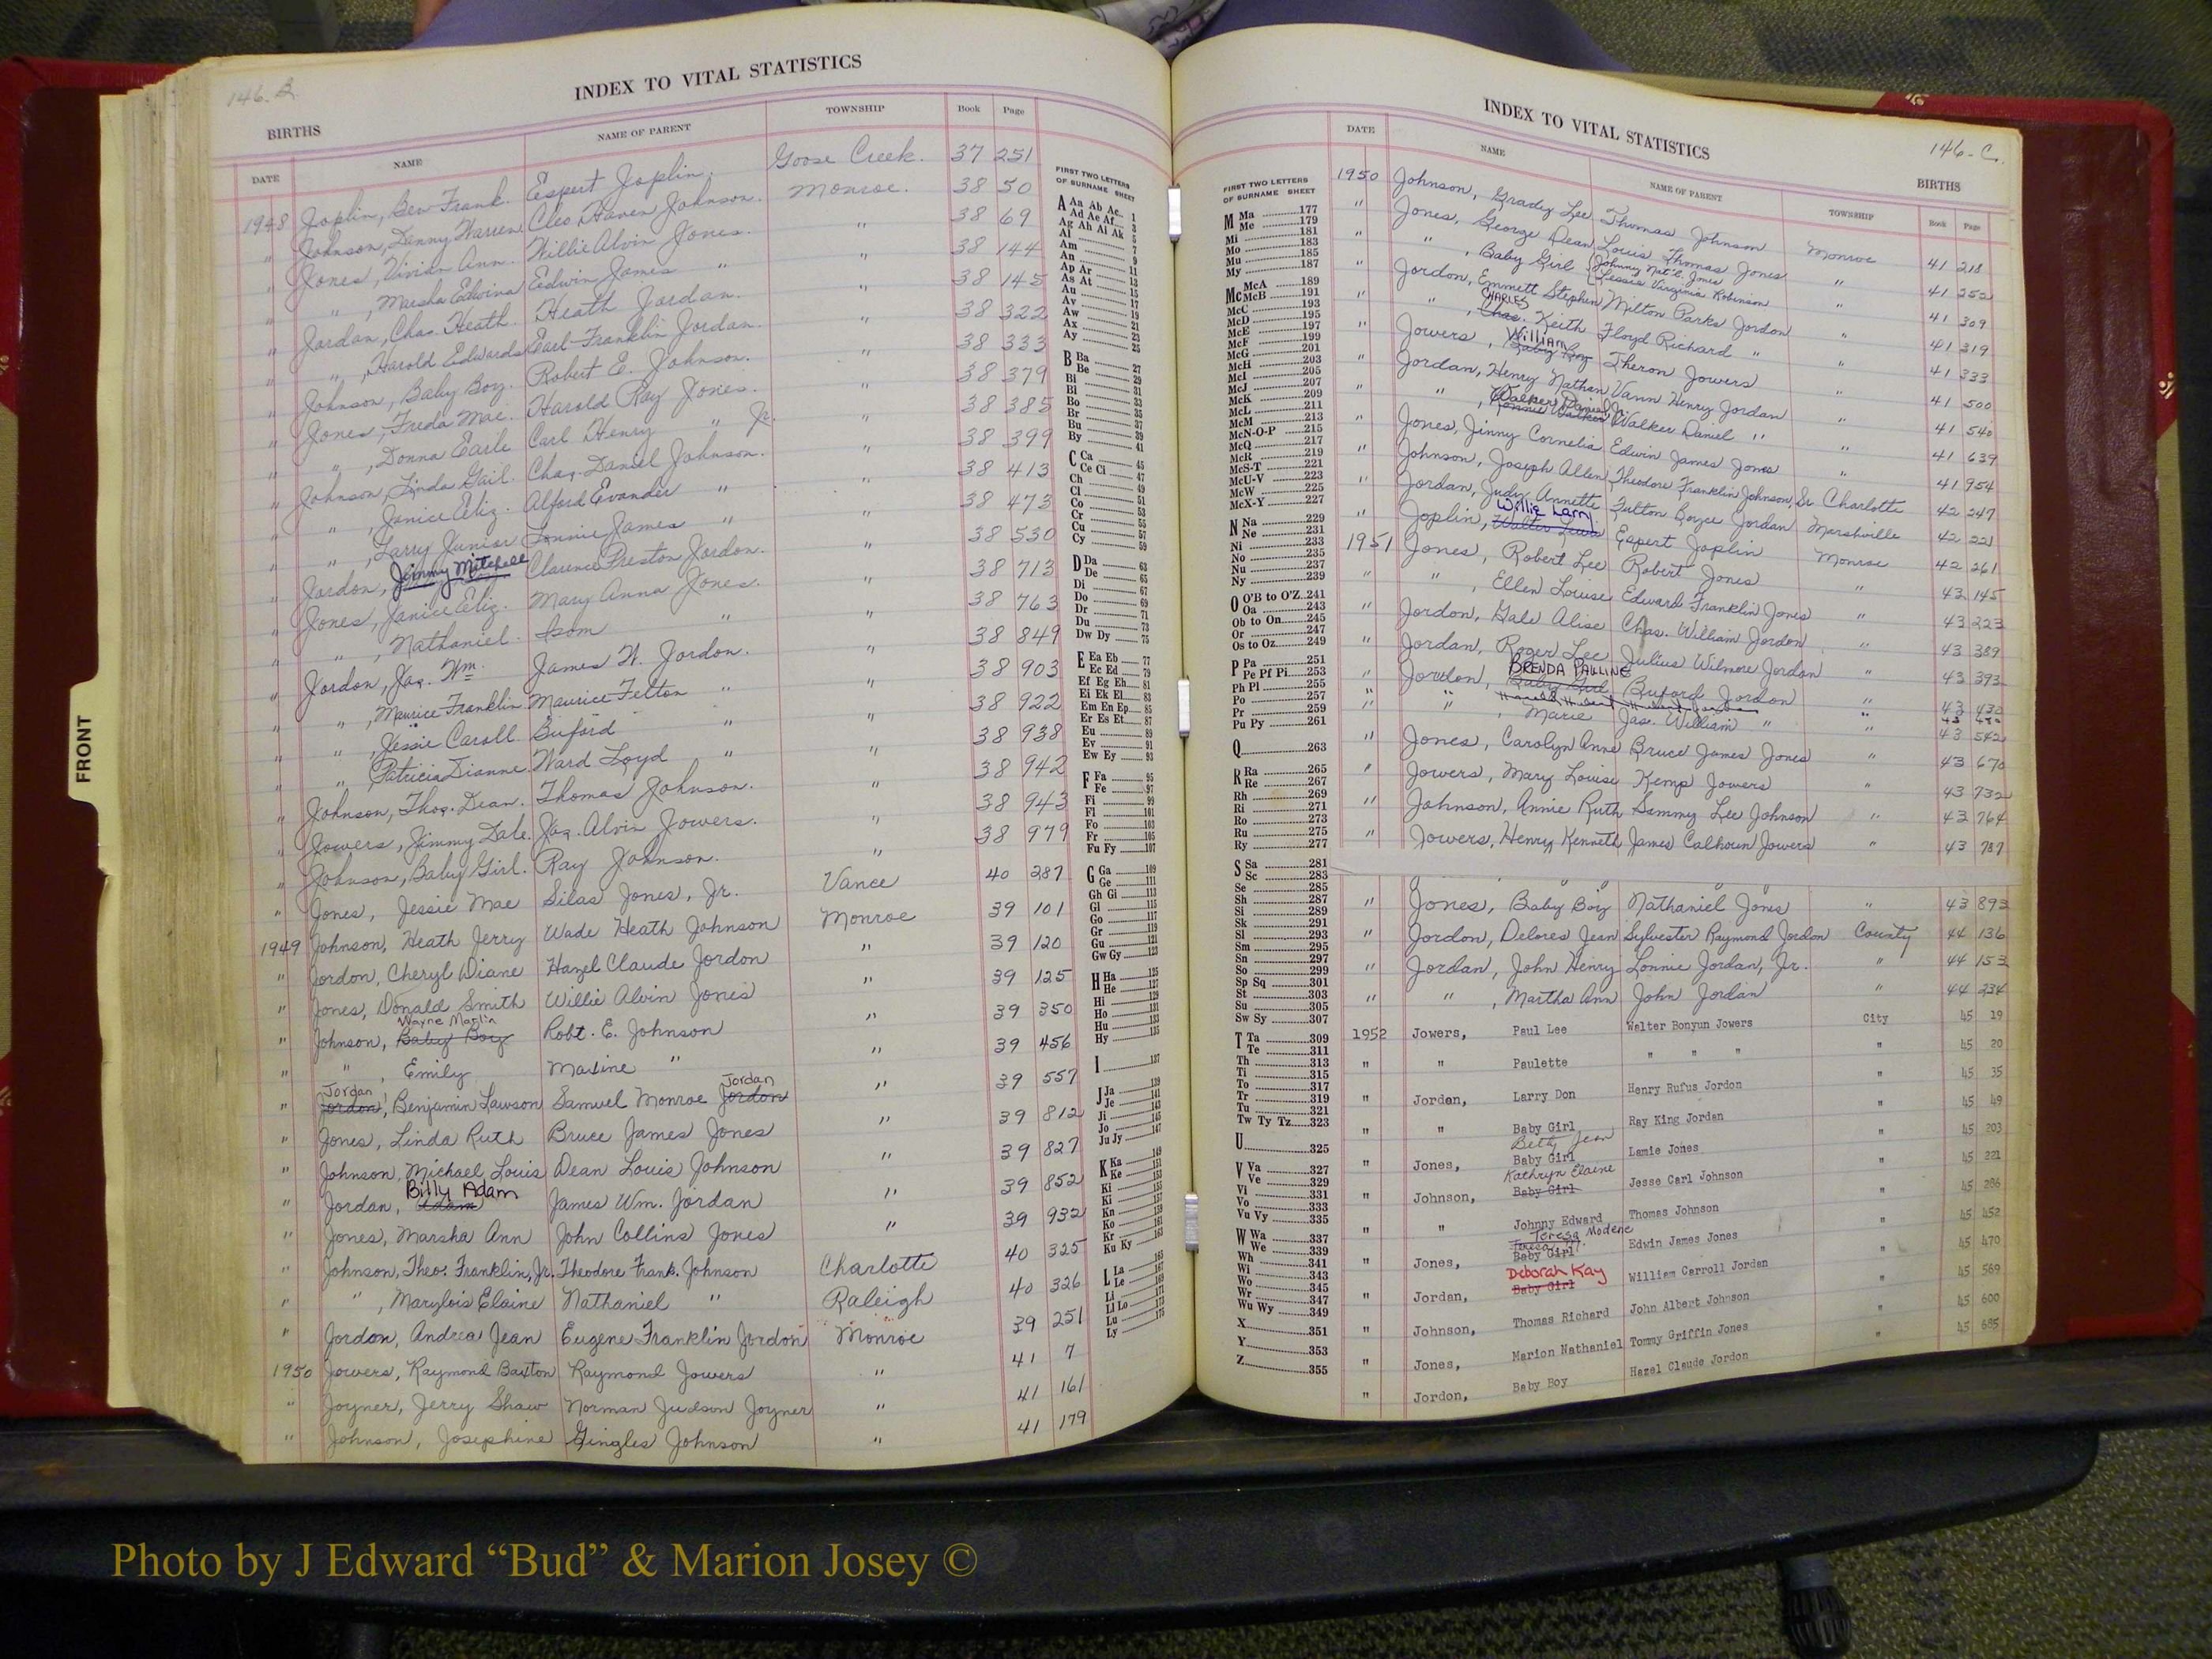 146-B
INDEX TO VITAL STATISTICS
BIRTHS
DATE NAME NAME OF PARENT TOWNSHIP Book Page
1948 Joplin, Ben Frank. Espert Joplin. Goose Creek. 37 251
" Johnson, Danny Warren Cleo Haven Johnson. Monroe. 38 50
" Jones, Vivian Ann. Willie Alvin Jones. " 38 69
" " , Marsha Edwina Edwin James " " 38 144
" Jordan, Chas. Heath. Heath Jordan. " 38 145
" " , Harold Edwards Earl Franklin Jordan. " 38 322
" Johnson, Baby Boy. Robert E. Johnson. " 38 333
" Jones, Freda Mae. Harold Ray Jones. " 38 379
" " , Donna Earle Carl Henry " Jr. " 38 385
" Johnson, Linda Gail. Chas. Daniel Johnson. " 38 399
" " , Janice Eliz. Alford Evander " " 38 413
" " , Larry Junior Lonnie James " " 38 473
" Jordon, Jimmy Mitchell Clarence Preston Jordon. " 38 530
" Jones, Janice Eliz. Mary Anna Jones. " 38 713
" " , Nathaniel. Isom " " 38 763
" Jordon, Jas. Wm. James W. Jordon. " 38 849
" " , Maurice Franklin Maurice Felton " " 38 903
" " , Jessie Caroll Buford " " 38 922
" " , Patricia Dianne Ward Loyd " " 38 938
" Johnson, Thos. Dean. Thomas Johnson. " 38 942
" Jowers, Jimmy Dale. Jas. Alvin Jowers. " 38 943
" Johnson, Baby Girl. Ray Johnson. " 38 979
" Jones, Jessie Mae Silas Jones, Jr. Vance 40 287
1949 Johnson, Heath Jerry Wade Heath Johnson Monroe 39 101
" Jordon, Cheryl Diane Hazel Claude Jordon " 39 120
" Jones, Donald Smith Willie Alvin Jones " 39 125
Wayne Martin
" Johnson, Baby Boy Robt. E. Johnson " 39 350
" " , Emily Maxine " " 39 456
Jordan Jordan
" Jordon, Benjamin Lawson Samuel Monroe Jordon " 39 557
" Jones, Linda Ruth Bruce James Jones " 39 812
" Johnson, Michael Louis Dean Louis Johnson " 39 827
Billy Adam
" Jordan, Adam James Wm. Jordan " 39 852
" Jones, Marsha Ann John Collins Jones " 39 932
" Johnson, Theo. Franklin, Jr. Theodore Frank. Johnson Charlotte 40 325
" " , Marylois Elaine Nathaniel " Raleigh 40 326
" Jordon, Andrea Jean Eugene Franklin Jordon Monroe 39 251
1950 Jowers, Raymond Baxton Raymond Jowers " 41 7
" Joyner, Jerry Shaw Norman Judson Joyner " 41 161
" Johnson, Josephine Gingles Johnson " 41 179
FRONT
FIRST TWO LETTERS
OF SURNAME SHEET
A Aa Ab Ac 1
Ad Ae Af 3
Ag Ah Ai Ak 5
Al 7
Am 9
An
Ap Ar 11
As At 13
Au 15
Av 17
Aw 19
Ax 21
Ay 23
25
B Ba 27
Be 29
Bi 31
Bl 33
Bo 35
Br 37
Bu 39
By 41
C Ca 45
Ce Ci 47
Ch 49
Cl 51
Co 53
Cr 55
Cu 57
Cy 59
D Da 63
De 65
Di 67
Do 69
Dr 71
Du 73
Dw Dy 75
E Ea Eb 77
Ec Ed 79
Ef Eg Eh 81
Ei Ek El 83
Em En Ep 85
Er Es Et 87
Eu 89
Ev 91
Ew Ey 93
F Fa 95
Fe 97
Fi 99
Fl 101
Fo 103
Fr 105
Fu Fy 107
G Ga 109
Ge 111
Gh Gi 113
Gl 115
Go 117
Gr 119
Gu 121
Gw Gy 123
H Ha 125
He 127
Hi 129
Ho 131
Hu 133
Hy 135
I 137
J Ja 139
Je 141
Ji 143
Jo 145
Ju Jy 147
K Ka 149
Ke 151
Ki 153
Kl 155
Kn 159
Ko 161
Kr 163
Ku Ky
L La 165
Le 167
Li 169
Ll Lo 171
Lu 173
Ly 175
INDEX TO VITAL STATISTICS
146-C.
BIRTHS
FIRST TWO LETTERS
OF SURNAME SHEET
M Ma 177
Me 179
Mi 181
Mo 183
Mu 185
My 187
Mc McA 189
McB 191
McC 193
McD 195
McE 197
McF 199
McG 201
McH 203
McI 205
McJ 207
McK 209
McL 211
McM 213
McN-O-P 215
McQ 217
McR 219
McS-T 221
McU-V 223
McW 225
McX-Y 227
N Na 229
Ne 231
Ni 233
No 235
Nu 237
Ny 239
O O'B to O'Z 241
Oa 243
Ob to On 245
Or 247
Os to Oz 249
P Pa 251
Pe Pf Pi 253
Ph Pl 255
Po 257
Pr 259
Pu Py 261
Q 263
R Ra 265
Re 267
Rh 269
Ri 271
Ro 273
Ru 275
Ry 277
S Sa 281
Sc 283
Se 285
Sh 287
Si 289
Sk 291
Sl 293
Sm 295
Sn 297
So 299
Sp Sq 301
St 303
Su 305
Sw Sy 307
T Ta 309
Te 311
Th 313
Ti 315
To 317
Tr 319
Tu 321
Tw Ty Tz 323
U 325
V Va 327
Ve 329
Vi 331
Vo 333
Vu Vy 335
W Wa 337
We 339
Wh 341
Wi 343
Wo 345
Wr 347
Wu Wy 349
X 351
Y 353
Z 355
DATE NAME NAME OF PARENT TOWNSHIP Book Page
1950 Johnson, Grady Lee Thomas Johnson Monroe 41 218
" Jones, George Dean Louis Thomas Jones " 41 252
" " , Baby Girl (Johnny Nat'l. Jones
(Lessie Virginia Robinson " 41 309
" Jordon, Emmett Stephen Milton Parks Jordon " 41 319
CHARLES
" " , Chas. Keith Floyd Richard " " 41 333
William
" Jowers, Baby Boy Theron Jowers " 41 500
" Jordan, Henry Nathan Vann Henry Jordan " 41 540
Walker Daniel Jr.
" " , Walker Daniel " " 41 639
" Jones, Jinny Cornelia Edwin James Jones " 41 954
" Johnson, Joseph Allen Theodore Franklin Johnson, Sr. Charlotte 42 247
" Jordan, Judy Annette Fulton Boyce Jordan Marshville 42 221
Willie Larry
" Joplin, Walter Lewis Espert Joplin Monroe 42 261
1951 Jones, Robert Lee Robert Jones " 43 145
" " , Ellen Louise Edward Franklin Jones " 43 223
" Jordon, Gale Alise Chas. William Jordon " 43 389
" Jordan, Roger Lee Julius Wilmore Jordan " 43 393
BRENDA PAULINE
" Jordon, Baby Girl Buford Jordon " 43 430
" " , Marie Jas. William " " 43 542
" Jones, Carolyn Anne Bruce James Jones " 43 670
" Jowers, Mary Louise Kemp Jowers " 43 732
" Johnson, Annie Ruth Sammy Lee Johnson " 43 764
" Jowers, Henry Kenneth James Calhoun Jowers " 43 787
" Jones, Baby Boy Nathaniel Jones " 43 893
" Jordon, Delores Jean Sylvester Raymond Jordon County 44 136
" Jordan, John Henry Lonnie Jordan, Jr. " 44 153
" " , Martha Ann John Jordan " 44 234
1952 Jowers, Paul Lee Walter Bonyun Jowers City 45 19
" " Paulette " " " " 45 20
" Jordon, Larry Don Henry Rufus Jordon " 45 35
" " Baby Girl Ray King Jordan " 45 49
Betty Jean
" Jones, Baby Girl Lamie Jones " 45 203
Kathryn Elaine
" Johnson, Baby Girl Jesse Carl Johnson " 45 221
" " Johnny Edward Thomas Johnson " 45 286
Teresa Modene
" Jones, Baby Girl Edwin James Jones " 45 452
Deborah Kay
" Jordan, Baby Girl William Carroll Jordan " 45 470
" Johnson, Thomas Richard John Albert Johnson " 45 569
" Jones, Marion Nathaniel Tommy Griffin Jones " 45 600
" Jordon, Baby Boy Hazel Claude Jordon " 45 685
Photo by J Edward “Bud” & Marion Josey ©